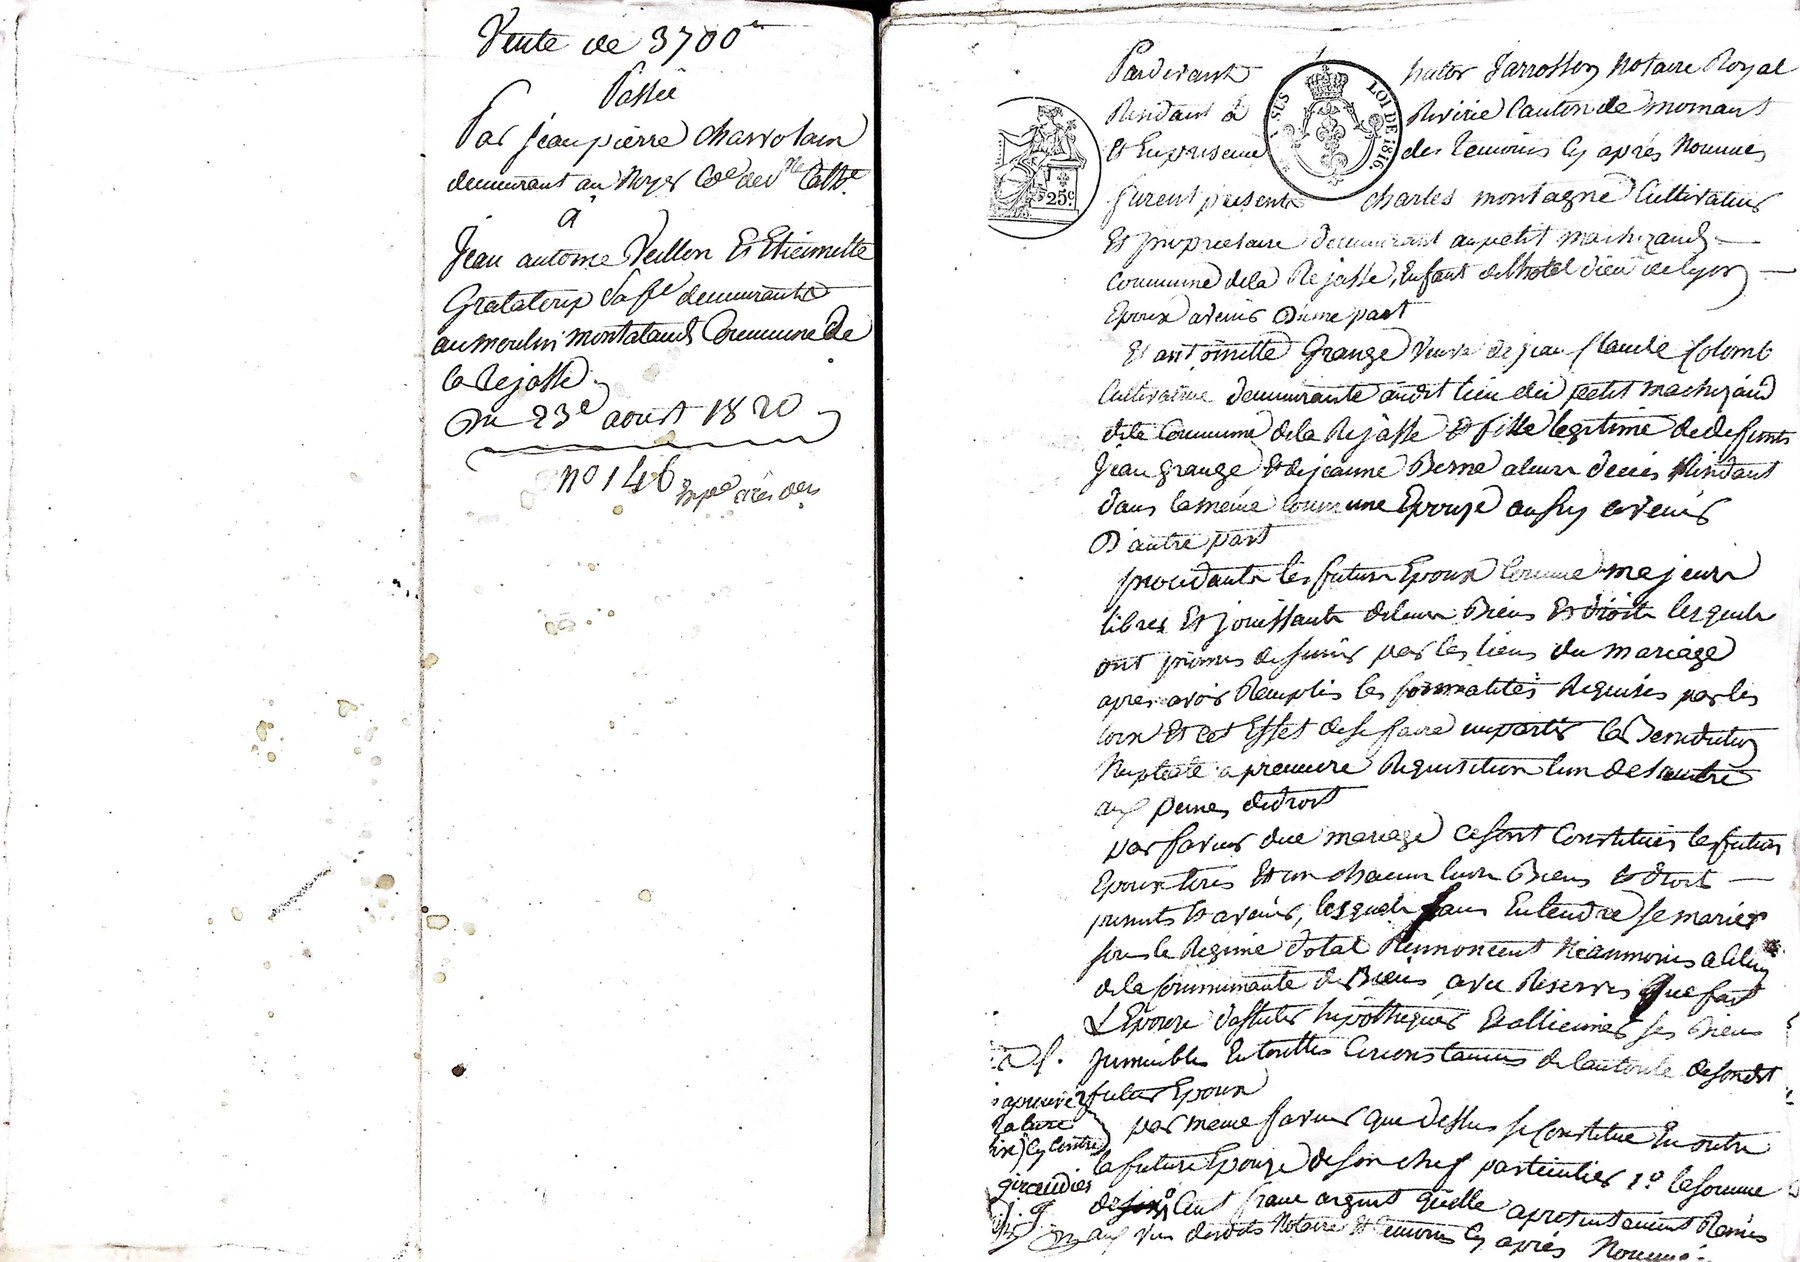 Vente de 3700
Passée
Par jean pierre charvolain
demeurant au Noyer Cne de Ste Cathe
à
Jean antoine Veillon Et Etiennette
Grataloup Sa fe demeurants
au moulin montaland Commune de
la Rejasse
Du 23e aoust 1820
No 146
Pardevant hector Jarrosson Notaire Royal
Residant à Riverie Canton de mornant
Et En presence des temoins Cy après Nommés
SUS LOI DE 1816.
25c
furent presents charles montagne Cultivateur
Et proprietaire demeurant au petit machizaud
Commune de la Rejasse, Enfant de l'hotel dieu de lyon
Epoux avenir D'une part
Et antoinette Grange Veuve de jean Claude Colomb
Cultivatrice demeurante audit lieu du petit machizaud
dite Commune de la Rejasse Et fille legitime de defunts
Jean grange Et de jeanne Berne a leur décès Residant
dans la même Commune Epouze aussy avenir
D'autre part
procedants les futurs Epoux Comme majeurs
libres Et jouissants de leurs Biens Et droits lesquels
ont promis de s'unir par les liens du mariage
apres avoir Remplis les formalités Requises par les
loix Et cet Effet de se faire impartir la Benediction
Nuptiale a premiere Requisition l'un de l'autre
aux peines de droit
par faveur due mariage ce sont Constitués les futurs
Epoux tous Et un chacun leurs Biens Et droits
presents Et avenir, lesquels sans Entendre se marier
sous le Regime dotal Renoncent Néanmoins a celuy
de la Communauté de Biens, avec Reserves que fait
L'Epouze d'affecter hipothequer Et allienier ses Biens
jmmeubles En touttes Circonstances de l'autorité de son dit
futur Epoux
approuvé
Rature
Cy Contre
giraudier
par meme faveur que dessus se Constitue En outre
la future Epouze de son chef particulier 1o la somme
de Cent franc argent qu'elle a presentement Remis
aux vu desdits Notaire Et temoins Cy après Nommés